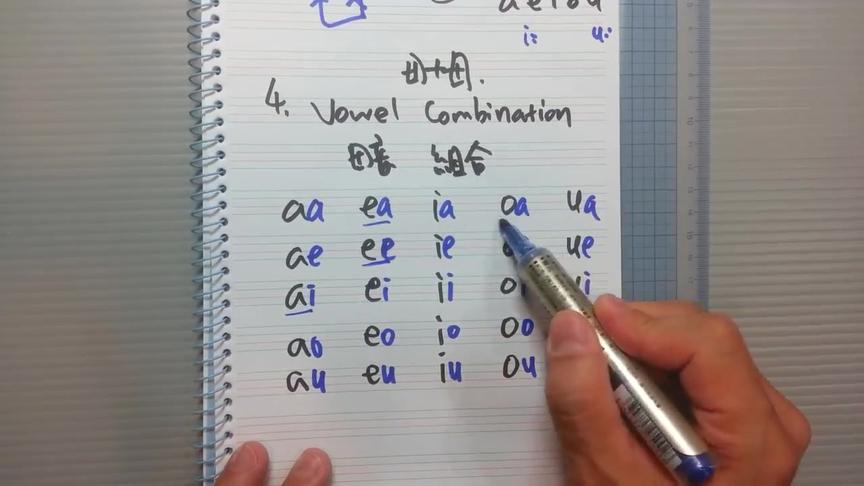 a e i o u
i: u:
母+母.
4. Vowel Combination
母音 組合
aa ea ia oa ua
ae ee ie ue
ai ei ii oi ui
ao eo io oo
au eu iu ou